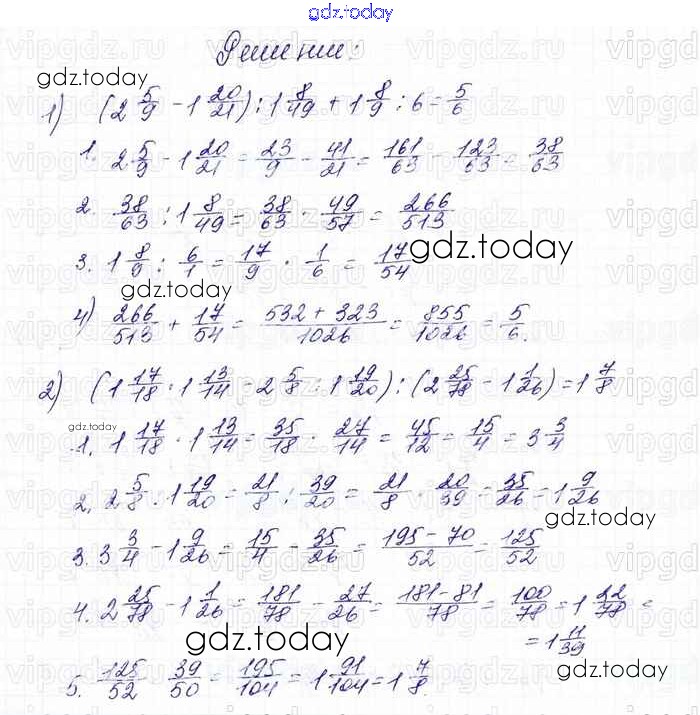 gdz.today
Решение:
gdz.today
1) (2 5/9 - 1 20/21) : 1 8/49 + 1 8/9 : 6 = 5/6
1. 2 5/9 - 1 20/21 = 23/9 - 41/21 = 161/63 - 123/63 = 38/63
2. 38/63 : 1 8/49 = 38/63 · 49/57 = 266/513
3. 1 8/9 : 6/1 = 17/9 · 1/6 = 17/54
gdz.today
gdz.today
4) 266/513 + 17/54 = (532 + 323)/1026 = 855/1026 = 5/6.
2) (1 17/18 · 1 13/14 - 2 5/8 : 1 19/20) : (2 25/78 - 1 1/26) = 1 7/8
gdz.today
1. 1 17/18 · 1 13/14 = 35/18 · 27/14 = 45/12 = 15/4 = 3 3/4
2. 2 5/8 : 1 19/20 = 21/8 : 39/20 = 21/8 · 20/39 = 35/26 = 1 9/26
gdz.today
3. 3 3/4 - 1 9/26 = 15/4 - 35/26 = (195 - 70)/52 = 125/52
4. 2 25/78 - 1 1/26 = 181/78 - 27/26 = (181 - 81)/78 = 100/78 = 1 22/78 =
= 1 11/39
gdz.today
gdz.today
5. 125/52 · 39/50 = 195/104 = 1 91/104 = 1 7/8.